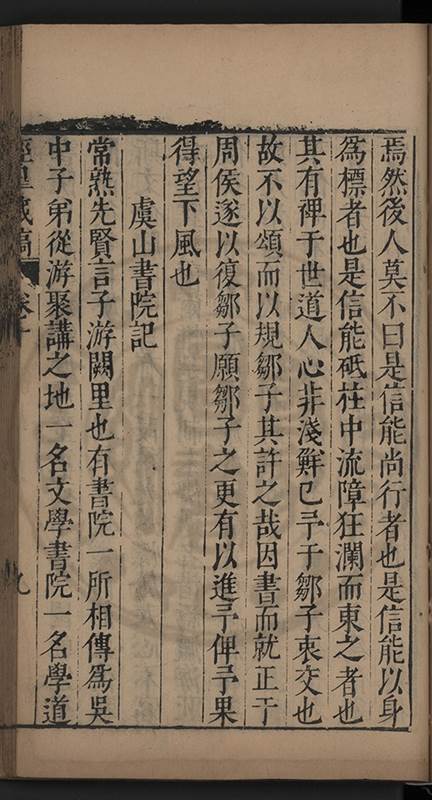 焉然後人莫不曰是信能尚行者也是信能以身
爲標者也是信能砥柱中流障狂瀾而東之者也
其有裨于世道人心非淺鮮已予于鄒子衷交也
故不以頌而以規鄒子其許之哉因書而就正于
周侯遂以復鄒子願鄒子之更有以進予俾予果
得望下風也
虞山書院記
常熟先賢言子游闕里也有書院一所相傳爲吳
中子弟從游聚講之地一名文學書院一名學道
涇臯藏稿
卷十
九